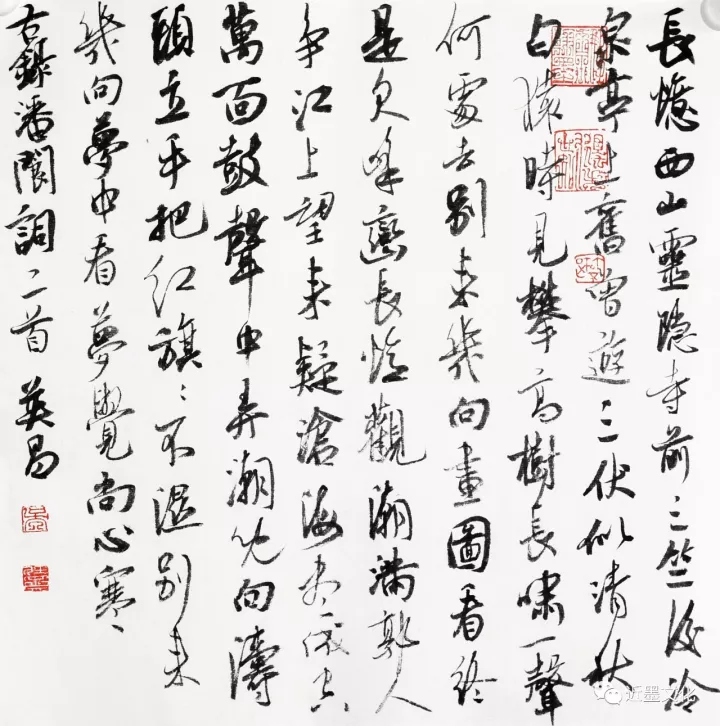 長憶西山靈隱寺前三竺後冷
泉亭上舊曾遊三伏似清秋
白猿時見攀高樹長嘯一聲
何處去別來幾向畫圖看終
是欠峰巒長憶觀潮滿郭人
爭江上望來疑滄海盡成空
萬面鼓聲中弄潮兒向濤
頭立手把紅旗〻不濕別來
幾向夢中看夢覺尚心寒
右錄潘閬詞二首 英昌
近墨文化